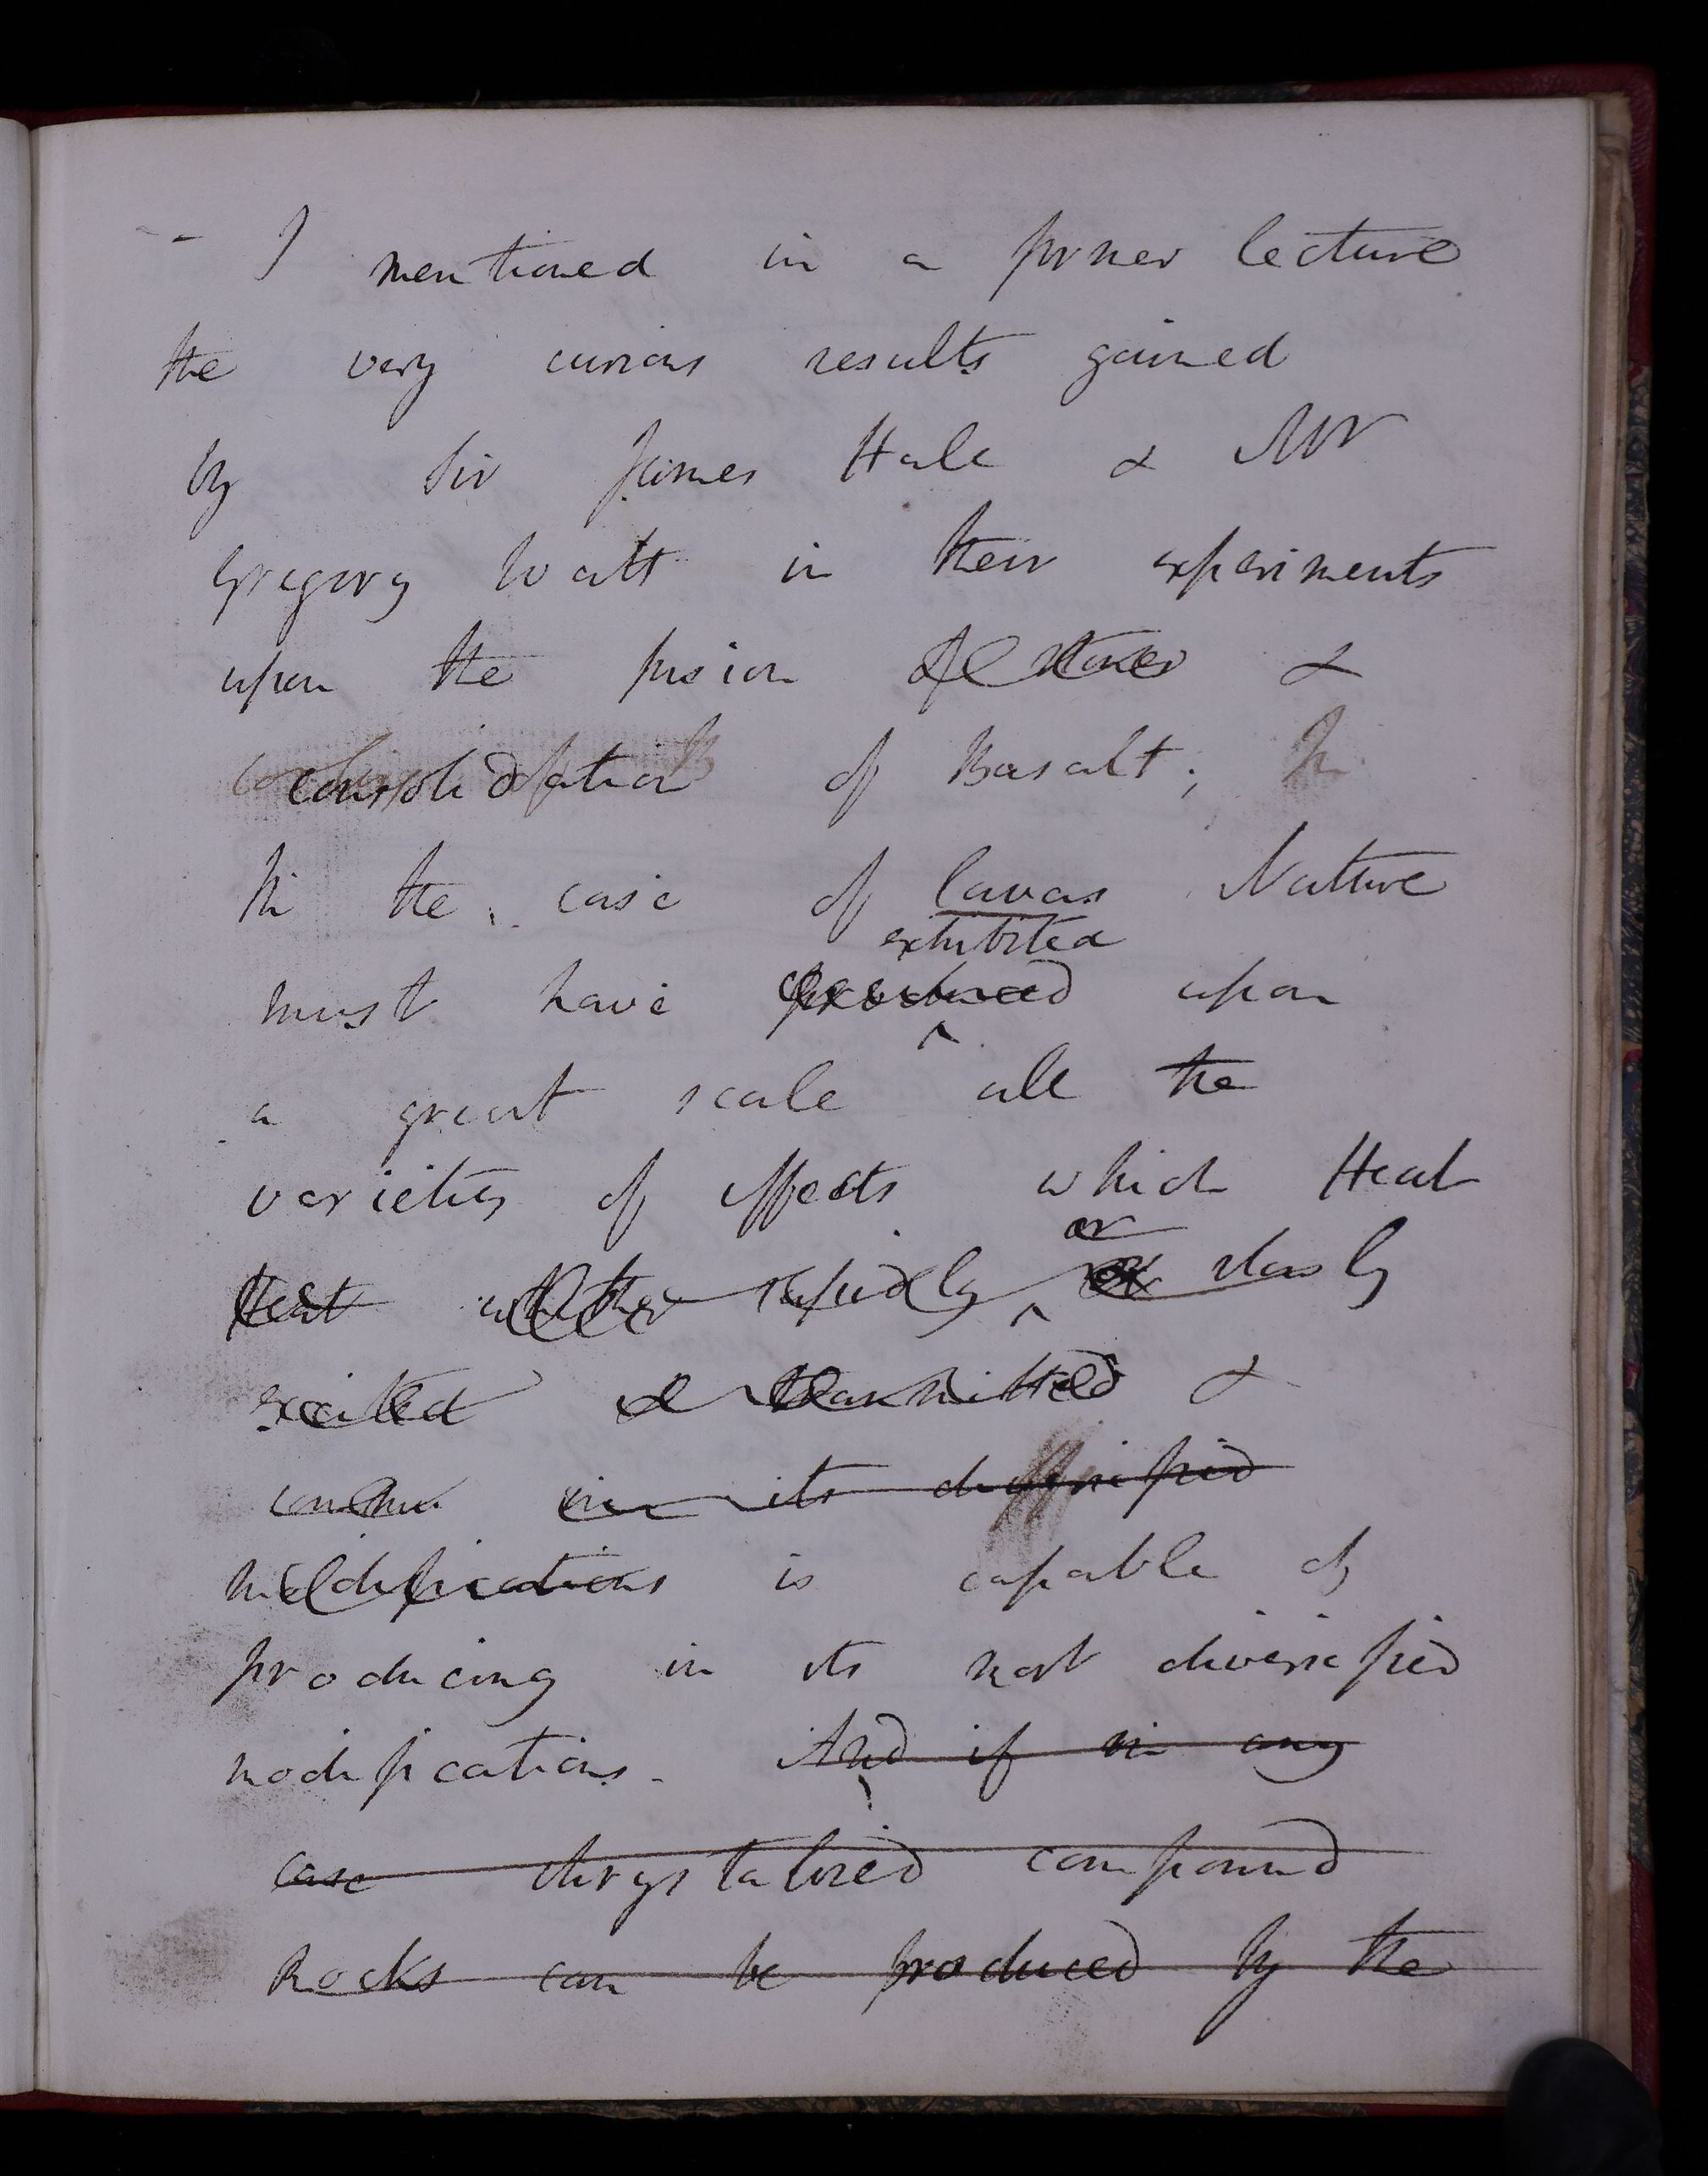 -- I mentioned in a former lecture
the very curious results gained
by Sir James Hale & Mr
Gregory Watt in their experiments
upon the fusion of stones &
consolidation of Basalt; In
In the case of lavas Nature
exhibited
must have produced upon
a great scale all the
varieties of effects which Heat
or
Heat whether rapidly or slowly
excited & transmitted &
in its diversified
modifications is capable of
producing in its most diversified
modifications. And if in any
case chrystalized compound
Rocks can be produced by the